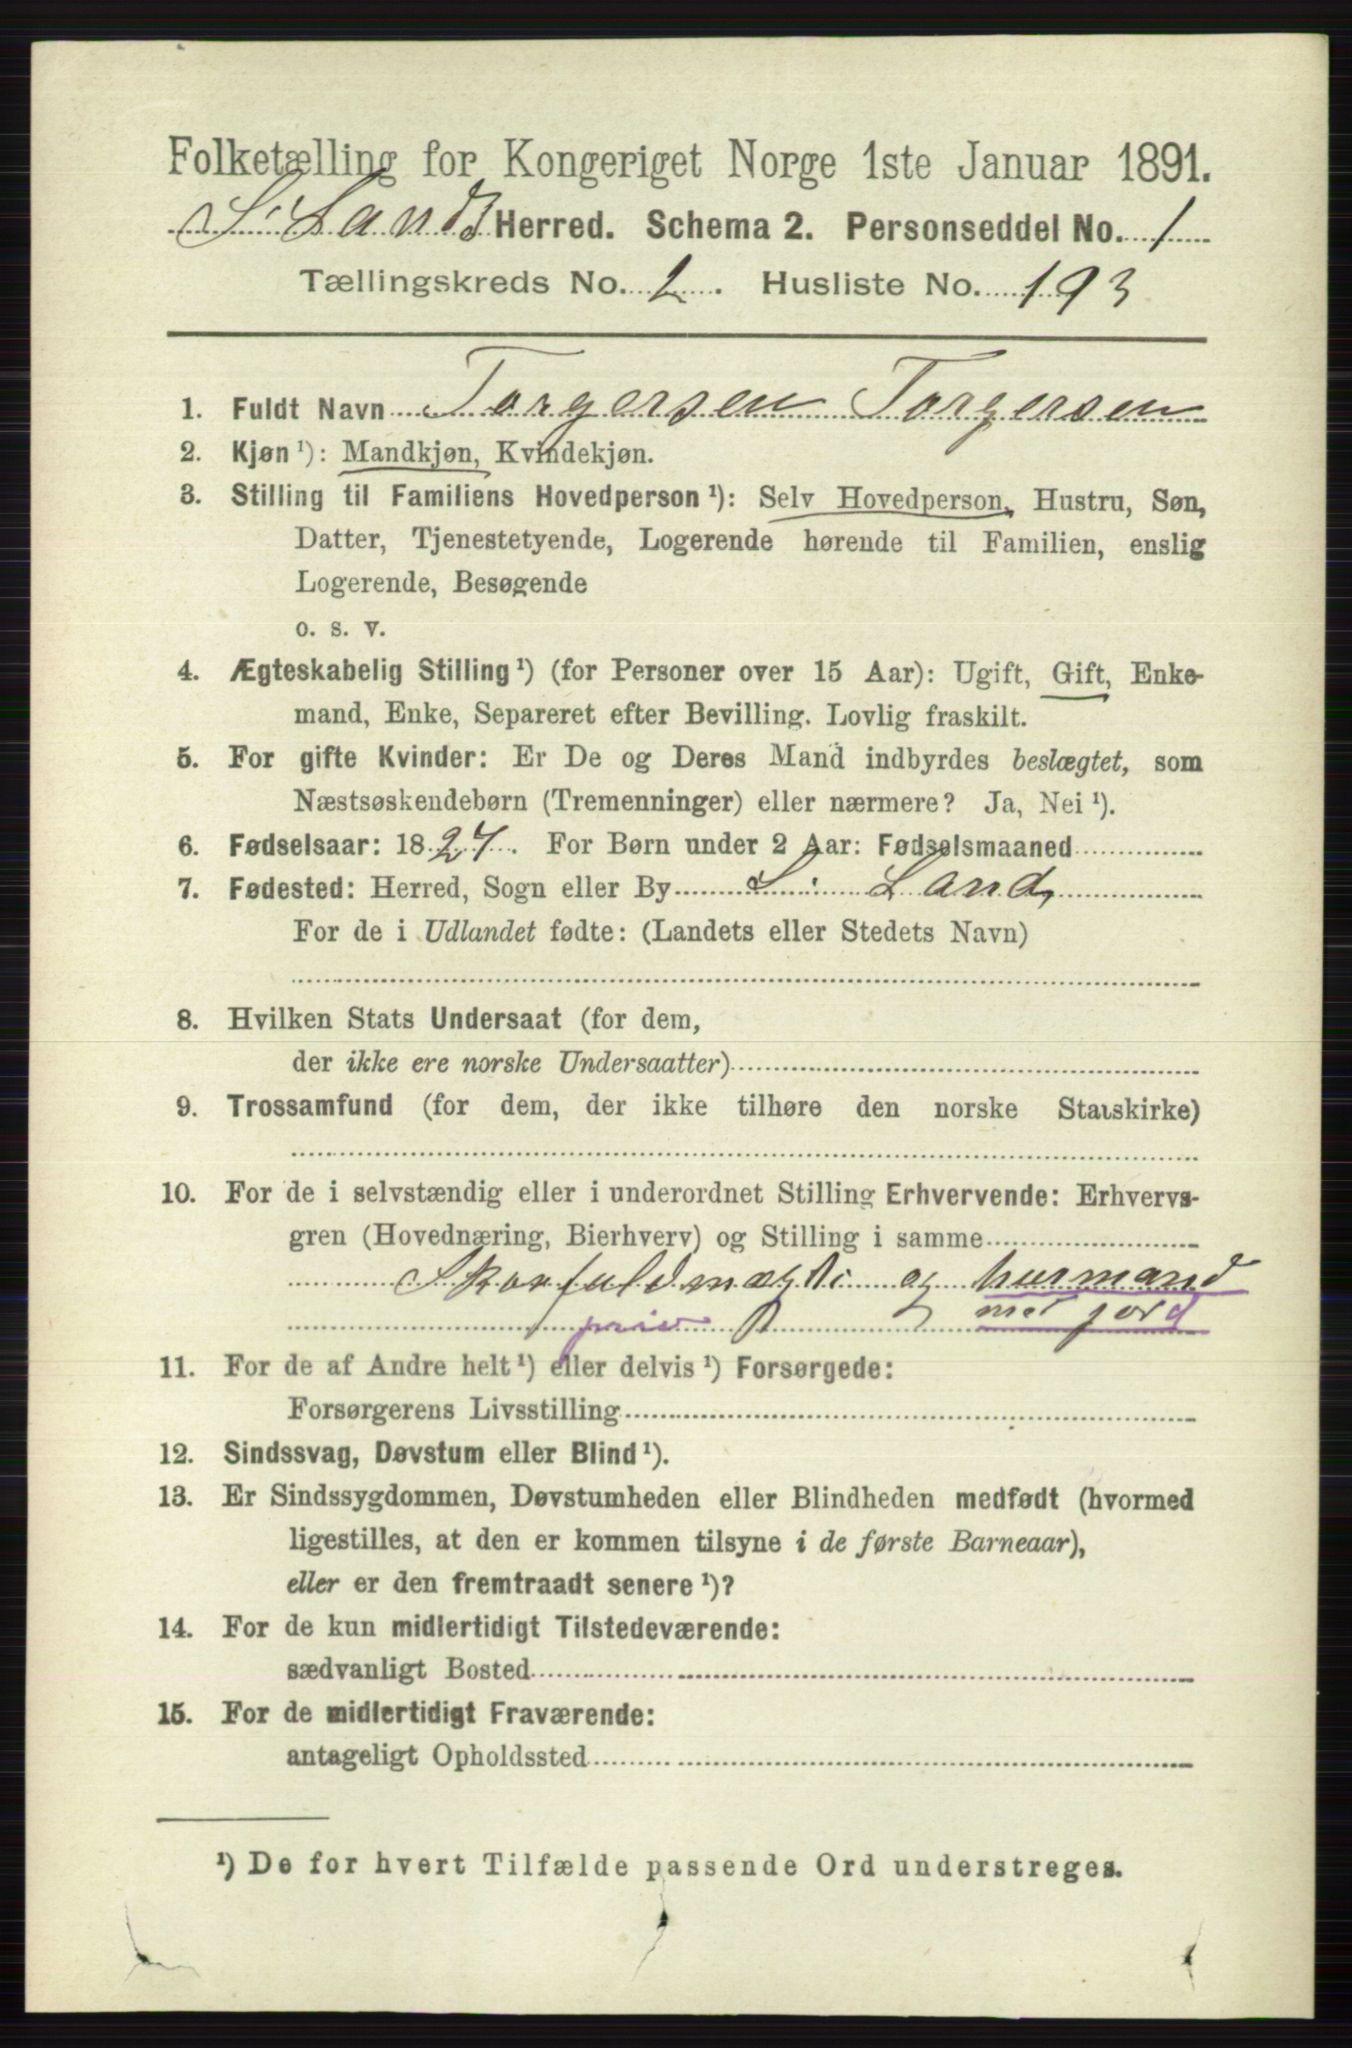 Folketælling for Kongeriget Norge 1ste Januar 1891.
S. Lands Herred. Schema 2. Personseddel No. 1
Tællingskreds No. 2. Husliste No. 193
1. Fuldt Navn Torgersen Torgersen
2. Kjøn ¹): Mandkjøn, Kvindekjøn.
3. Stilling til Familiens Hovedperson ¹): Selv Hovedperson, Hustru, Søn,
Datter, Tjenestetyende, Logerende hørende til Familien, enslig
Logerende, Besøgende
o. s. v.
4. Ægteskabelig Stilling ¹) (for Personer over 15 Aar): Ugift, Gift, Enke-
mand, Enke, Separeret efter Bevilling. Lovlig fraskilt.
5. For gifte Kvinder: Er De og Deres Mand indbyrdes beslægtet, som
Næstsøskendebørn (Tremenninger) eller nærmere? Ja, Nei ¹).
6. Fødselsaar: 1827. For Børn under 2 Aar: Fødselsmaaned
7. Fødested: Herred, Sogn eller By S. Land,
For de i Udlandet fødte: (Landets eller Stedets Navn)
8. Hvilken Stats Undersaat (for dem,
der ikke ere norske Undersaatter)
9. Trossamfund (for dem, der ikke tilhøre den norske Statskirke)
10. For de i selvstændig eller i underordnet Stilling Erhvervende: Erhvervs-
gren (Hovednæring, Bierhverv) og Stilling i samme
og husmand
priv med jord
11. For de af Andre helt ¹) eller delvis ¹) Forsørgede:
Forsørgerens Livsstilling
12. Sindssvag, Døvstum eller Blind ¹).
13. Er Sindssygdommen, Døvstumheden eller Blindheden medfødt (hvormed
ligestilles, at den er kommen tilsyne i de første Barneaar),
eller er den fremtraadt senere ¹)?
14. For de kun midlertidigt Tilstedeværende:
sædvanligt Bosted
15. For de midlertidigt Fraværende:
antageligt Opholdssted
¹) De for hvert Tilfælde passende Ord understreges.